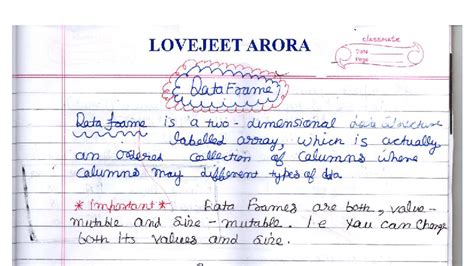 LOVEJEET ARORA
classmate
Date
Page
DataFrame
Data frame is a two-dimensional
labelled array, which is actually
an ordered collection of columns where
columns may different types of data
* important * Data Frames are both, value-
mutable and size-mutable. I.e You can change
both its values and size.